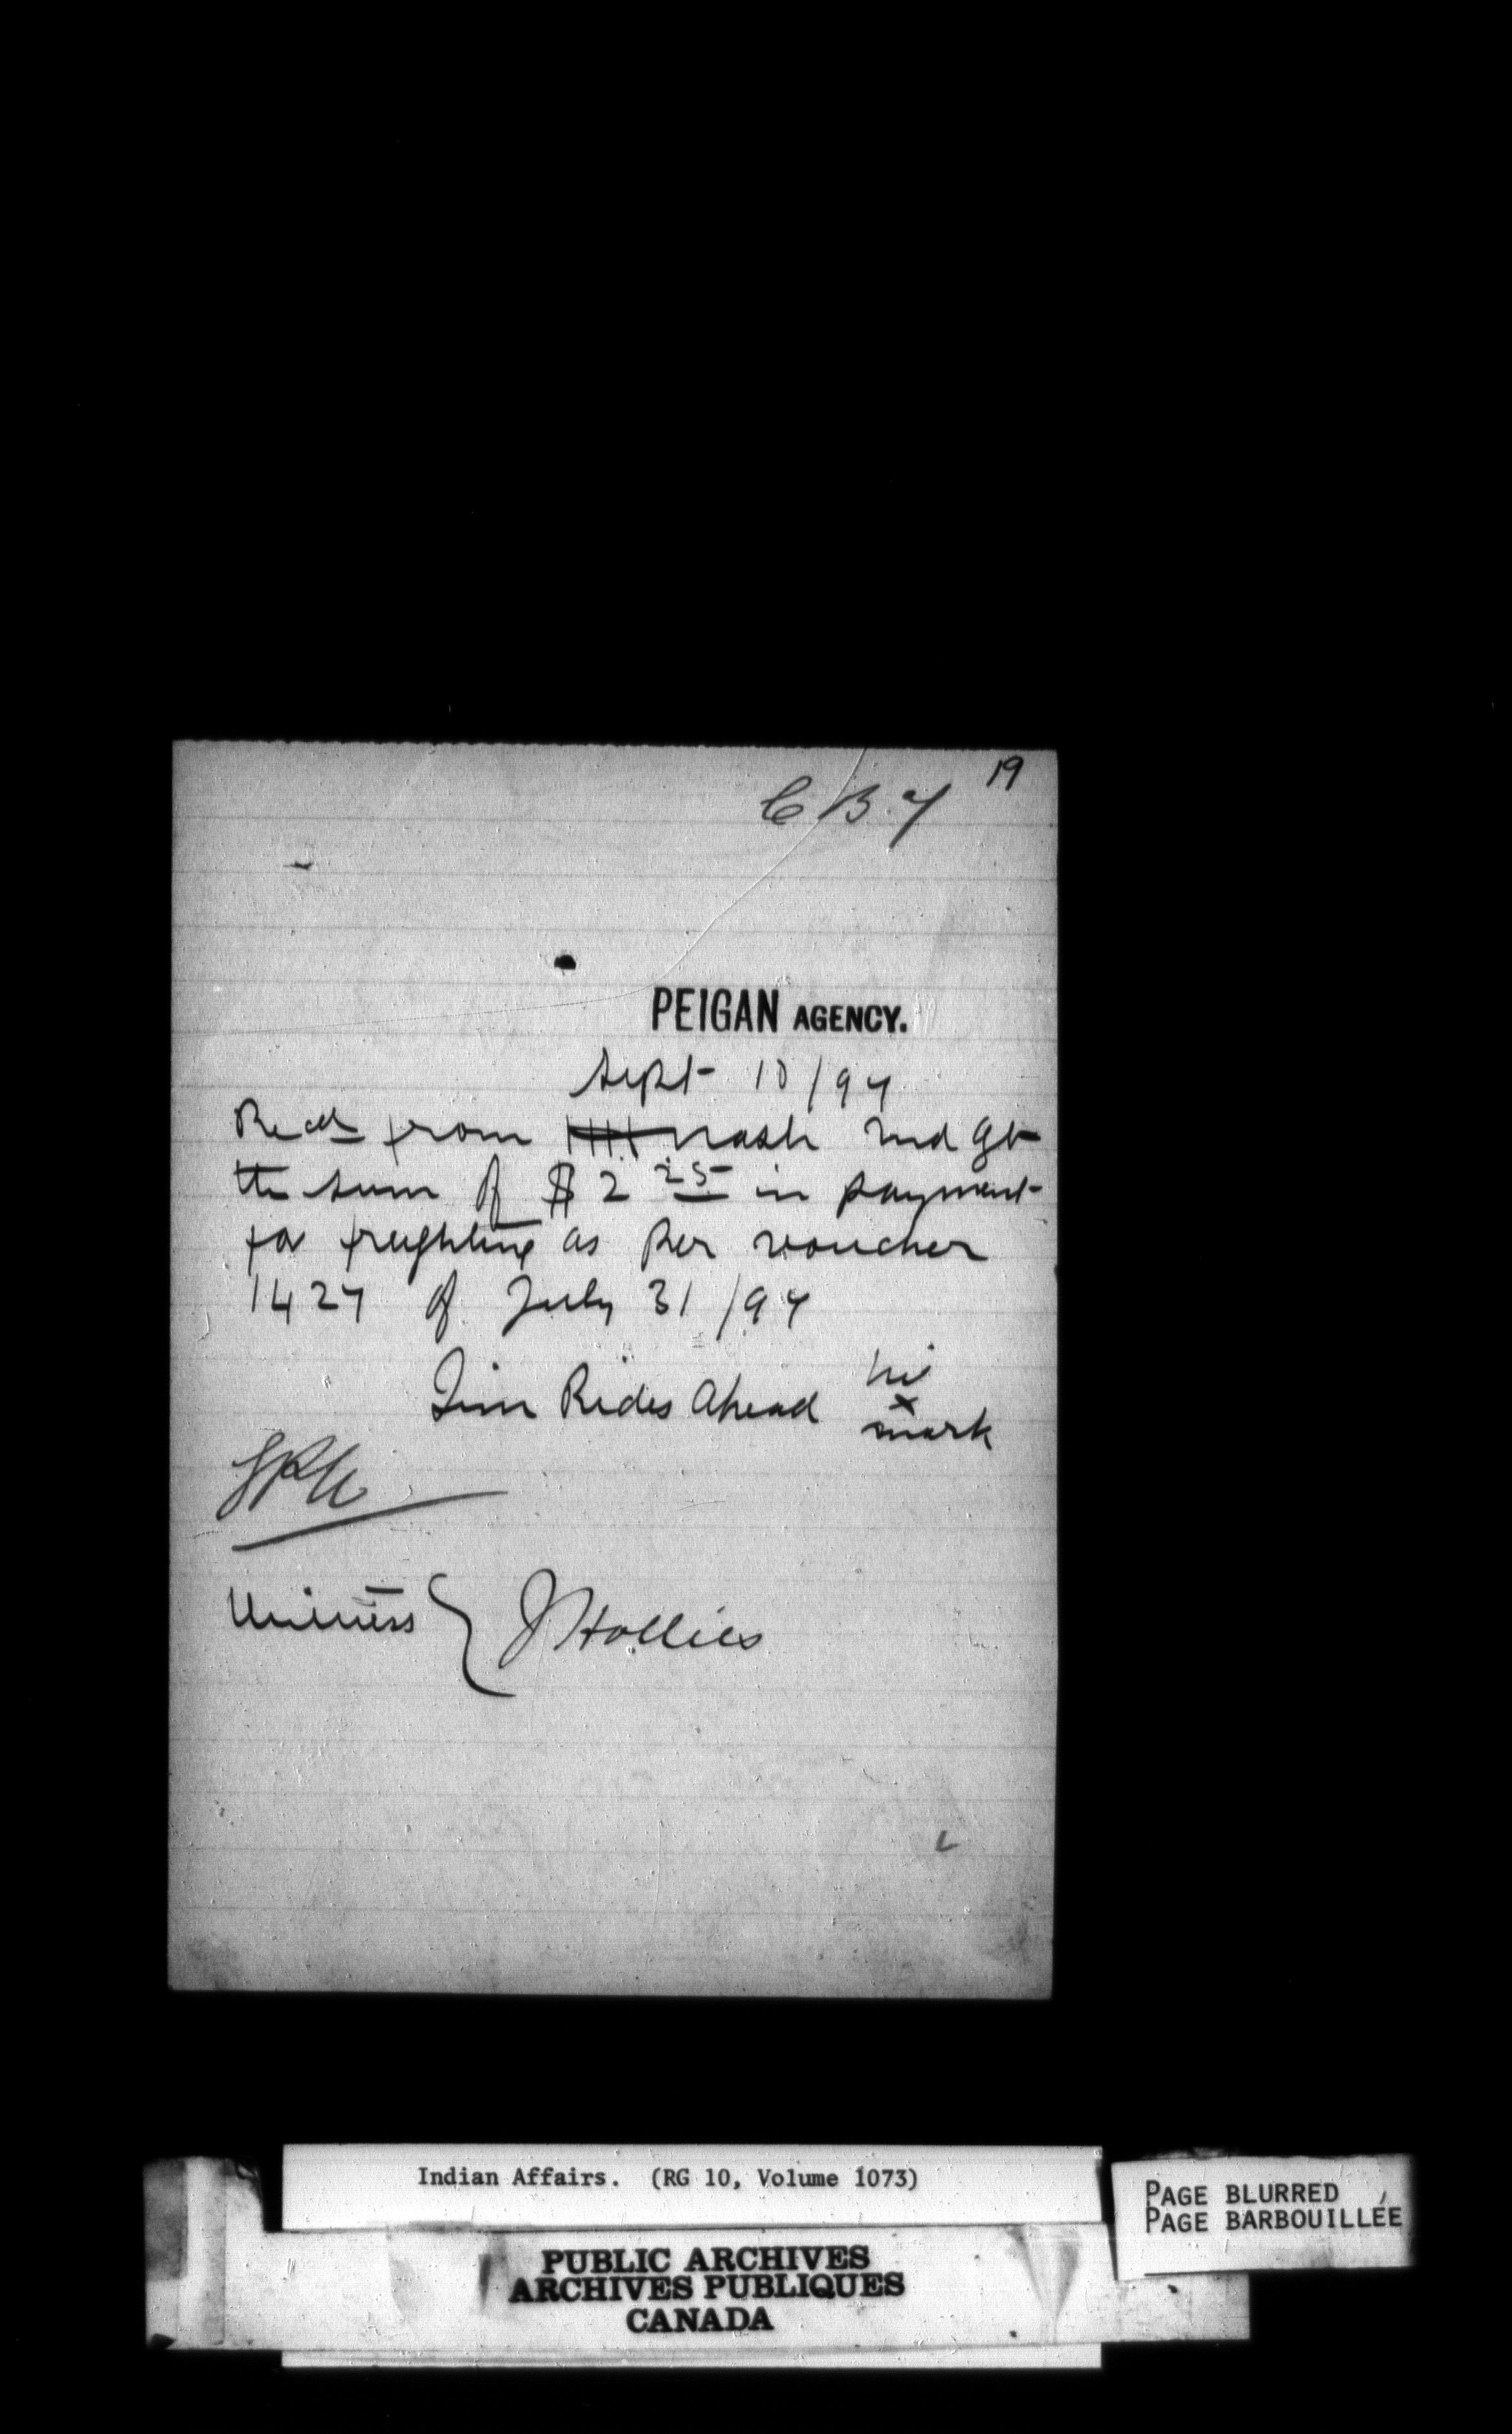 19
C B 7
PEIGAN AGENCY.
Sept 10/94
Recd from Nash Ind Agt
the sum of $2 25 in payment
for freighting as per voucher
1427 of July 31/94
Jim Rides Ahead his
x
mark
Witness } J Hollies
Indian Affairs. (RG 10, Volume 1073)
PAGE BLURRED
PAGE BARBOUILLÉE
PUBLIC ARCHIVES
ARCHIVES PUBLIQUES
CANADA